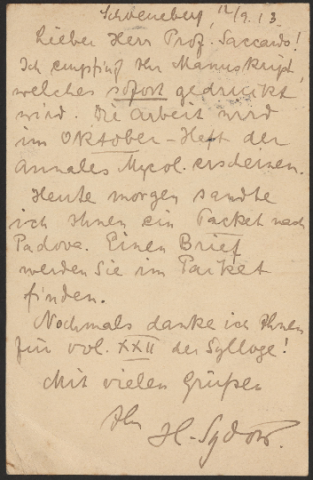 Schoeneberg, 12/9. 13.
Lieber Herr Prof. Saccardo!
Ich empfing Ihr Manuskript,
welches sofort gedruckt
wird. Die Arbeit wird
im Oktober-Heft der
Annales Mycol. erscheinen.
Heute morgen sandte
ich Ihnen ein Packet nach
Padova. Einen Brief
werden Sie im Packet
finden.
Nochmals danke ich Ihnen
für vol. XXII der Sylloge!
Mit vielen Grüßen
Ihr
H. Sydow.